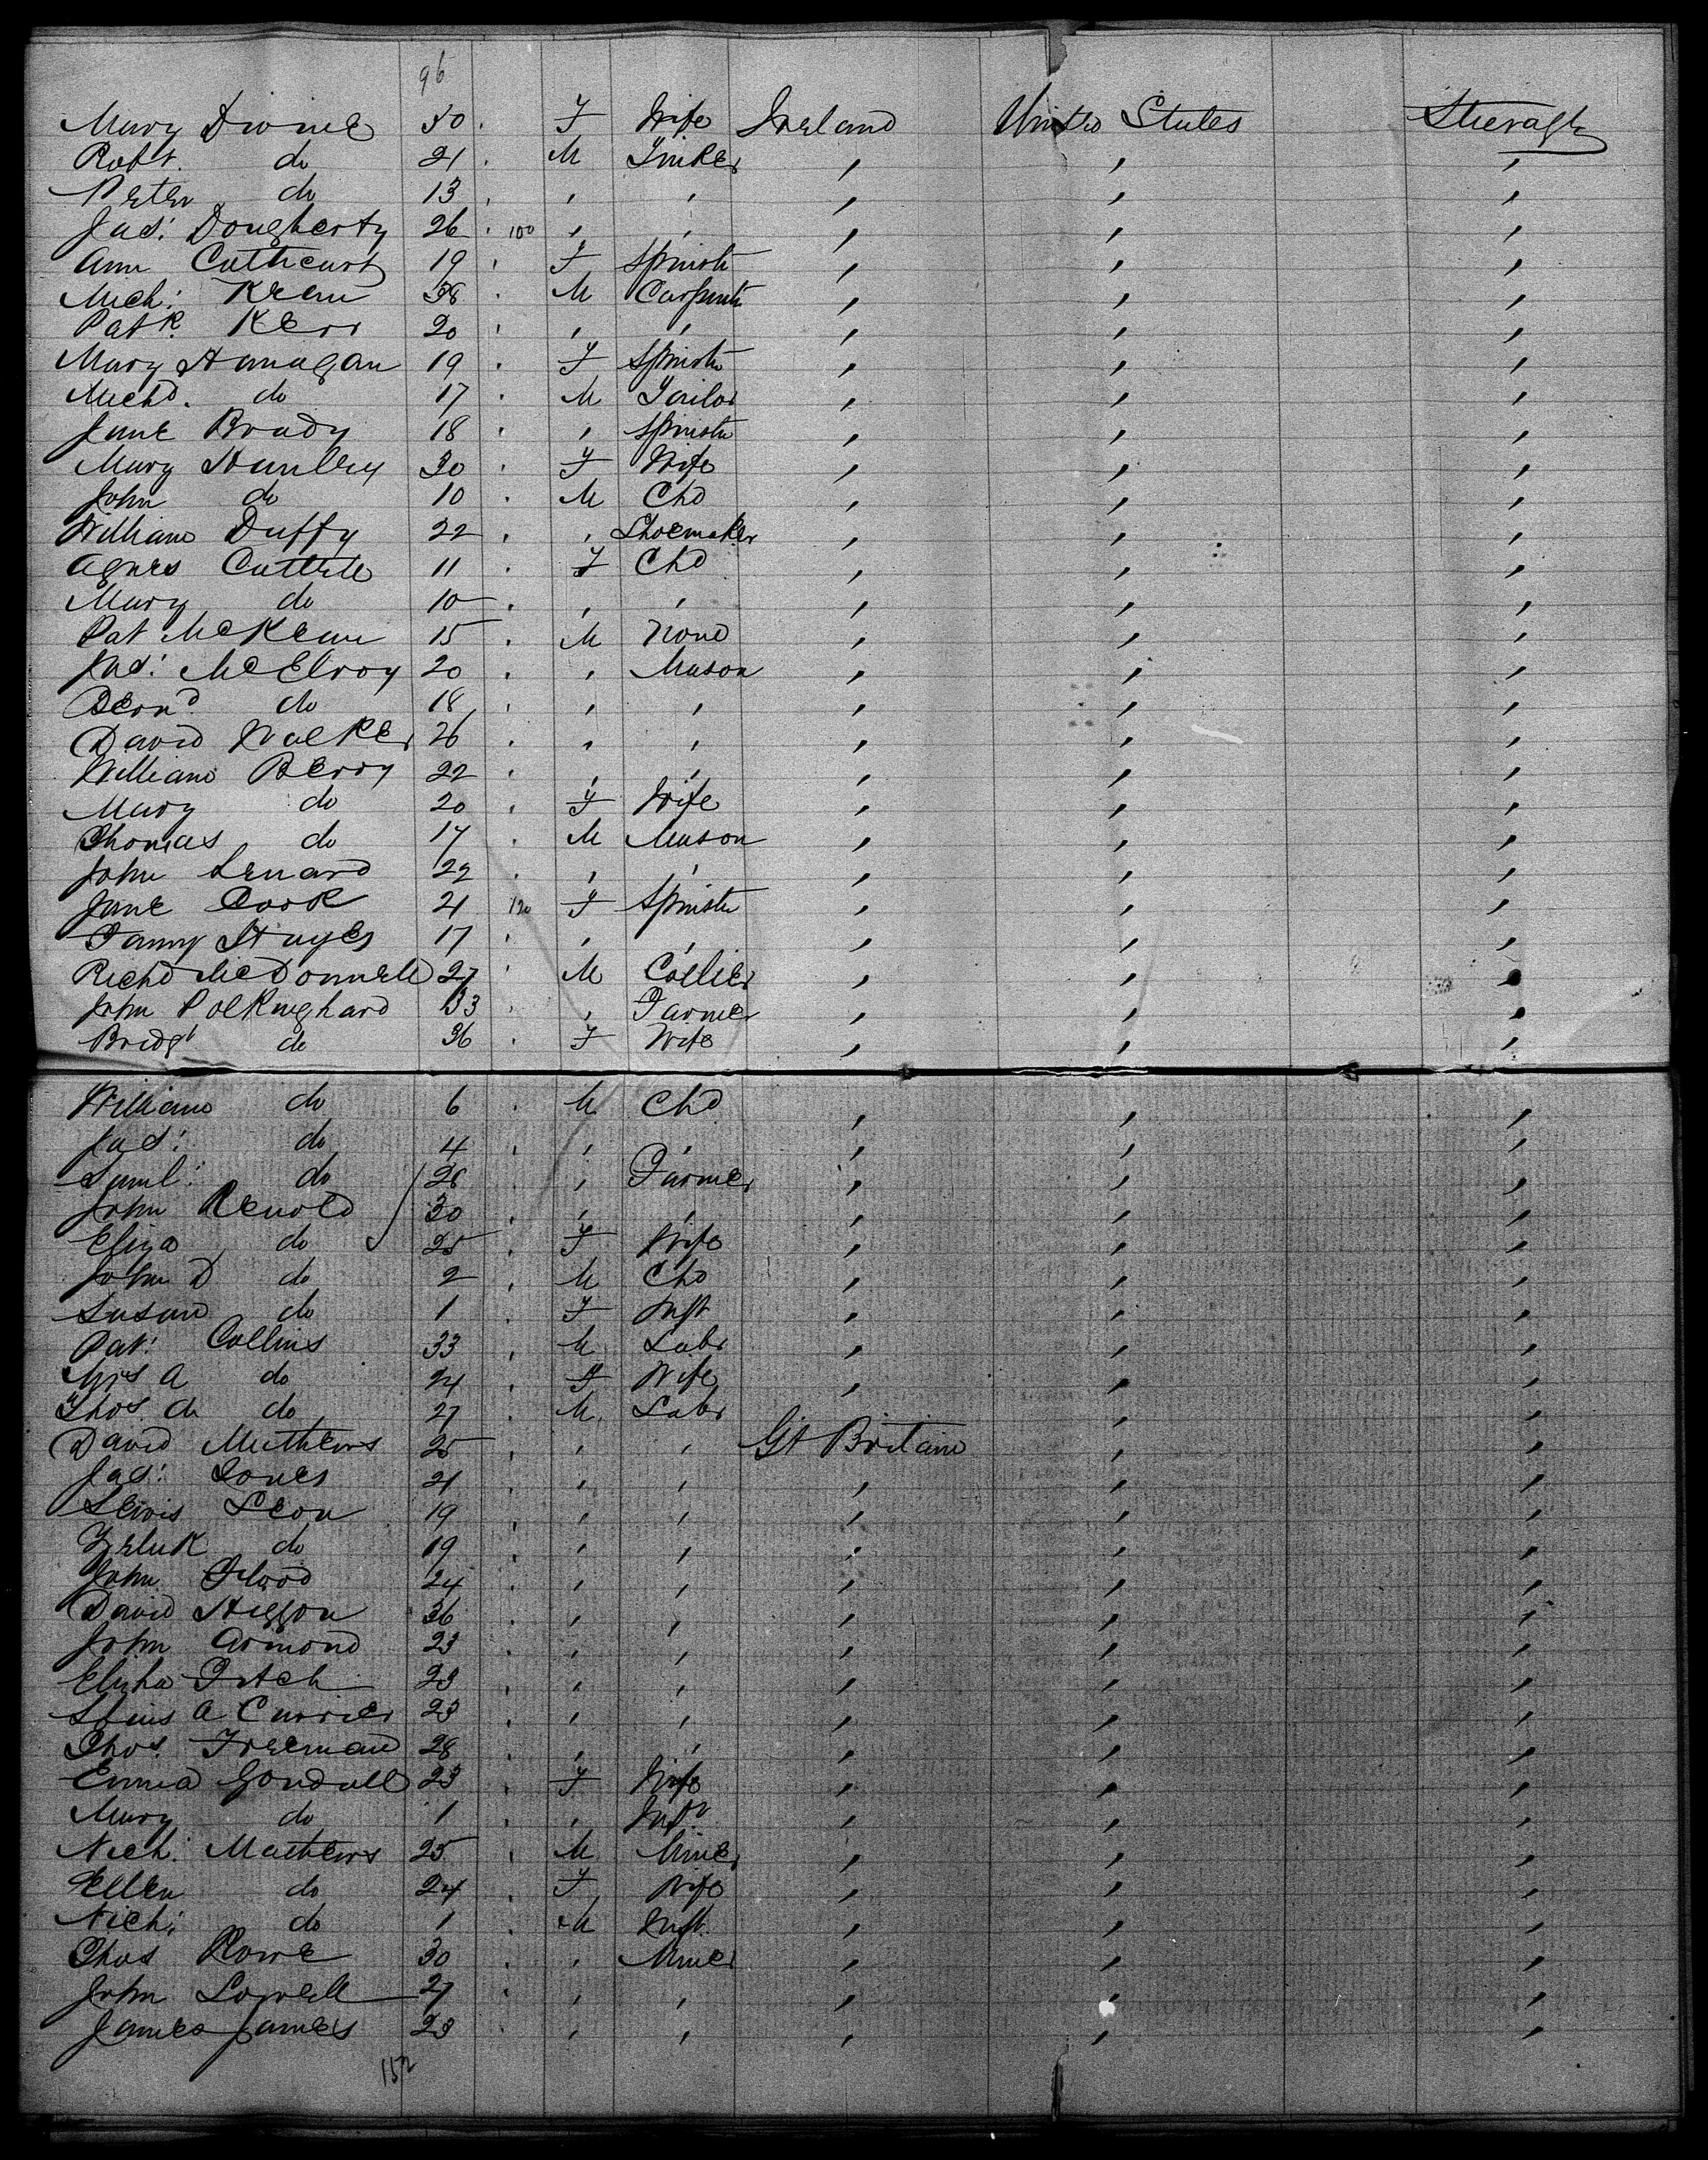 96
Mary Divine 50 . F Wife Ireland United States Steerage
Robt. do 21 . M Tinker , , ,
Peter do 13 , , , , , ,
Jas: Dougherty 26 . 100 , , , , ,
Ann Cathcart 19 . F Spinstr , , ,
Mich: Kean 38 . M Carpentr , , ,
Patk. Kerr 20 . , , , , ,
Mary Hanagan 19 . F Spinstr , , ,
Michd. do 17 . M Tailor , , ,
Jane Brady 18 . , Spinstr , , ,
Mary Hanley 30 . F Wife , , ,
John do 10 . M Chd , , ,
William Duffy 22 . , Shoemaker , , ,
Agnes Cuttile 11 . F Chd , , ,
Mary do 10 . , , , , ,
Pat McKenn 15 . M None , , ,
Jas: McElroy 20 . , Mason , , ,
Bernd do 18 . , , , , ,
David Walker 26 . , , , , ,
William Berry 22 . , , , , ,
Mary do 20 . F Wife , , ,
Thomas do 17 . M Mason , , ,
John Lenard 22 . , , , , ,
Jane Cook 21 120 F Spinstr , , ,
Fanny Hayes 17 . , , , , ,
Richd McDonnell 27 . M Collier , , ,
John Polkinghard 33 . , Farmer , , ,
Bridgt do 36 . F Wife , , ,
William do 6 . M Chd , , ,
Jas: do 4 . , , , , ,
Saml: do 28 . , Farmer , , ,
John Renold 30 . , , , , ,
Eliza do 25 . F Wife , , ,
John D do 2 . M Chd , , ,
Susan do 1 . F Inft , , ,
Pat: Collins 33 . M Labr , , ,
Mrs A do 24 . F Wife , , ,
Thos. do 27 . M Labr , , ,
David Mathews 25 . , , Gt Britain , ,
Jas: Jones 21 . , , , , ,
Lewis Leon 19 . , , , , ,
do 19 . , , , , ,
John Flood 24 . , , , , ,
David Higgon 36 . , , , , ,
John Armond 23 . , , , , ,
Elisha Fitch 23 . , , , , ,
Louis A Currier 23 . , , , , ,
Thos. Freeman 28 . , , , , ,
Emma Gondall 23 . F Wife , , ,
Mary do 1 . , Inft , , ,
Nich: Mathews 25 . M Miner , , ,
Ellen do 24 . F Wife , , ,
Nich: do 1 . M Inft , , ,
Thos Rowe 30 . , Miner , , ,
John Lowell 27 . , , , , ,
James James 23 . , , , , ,
152